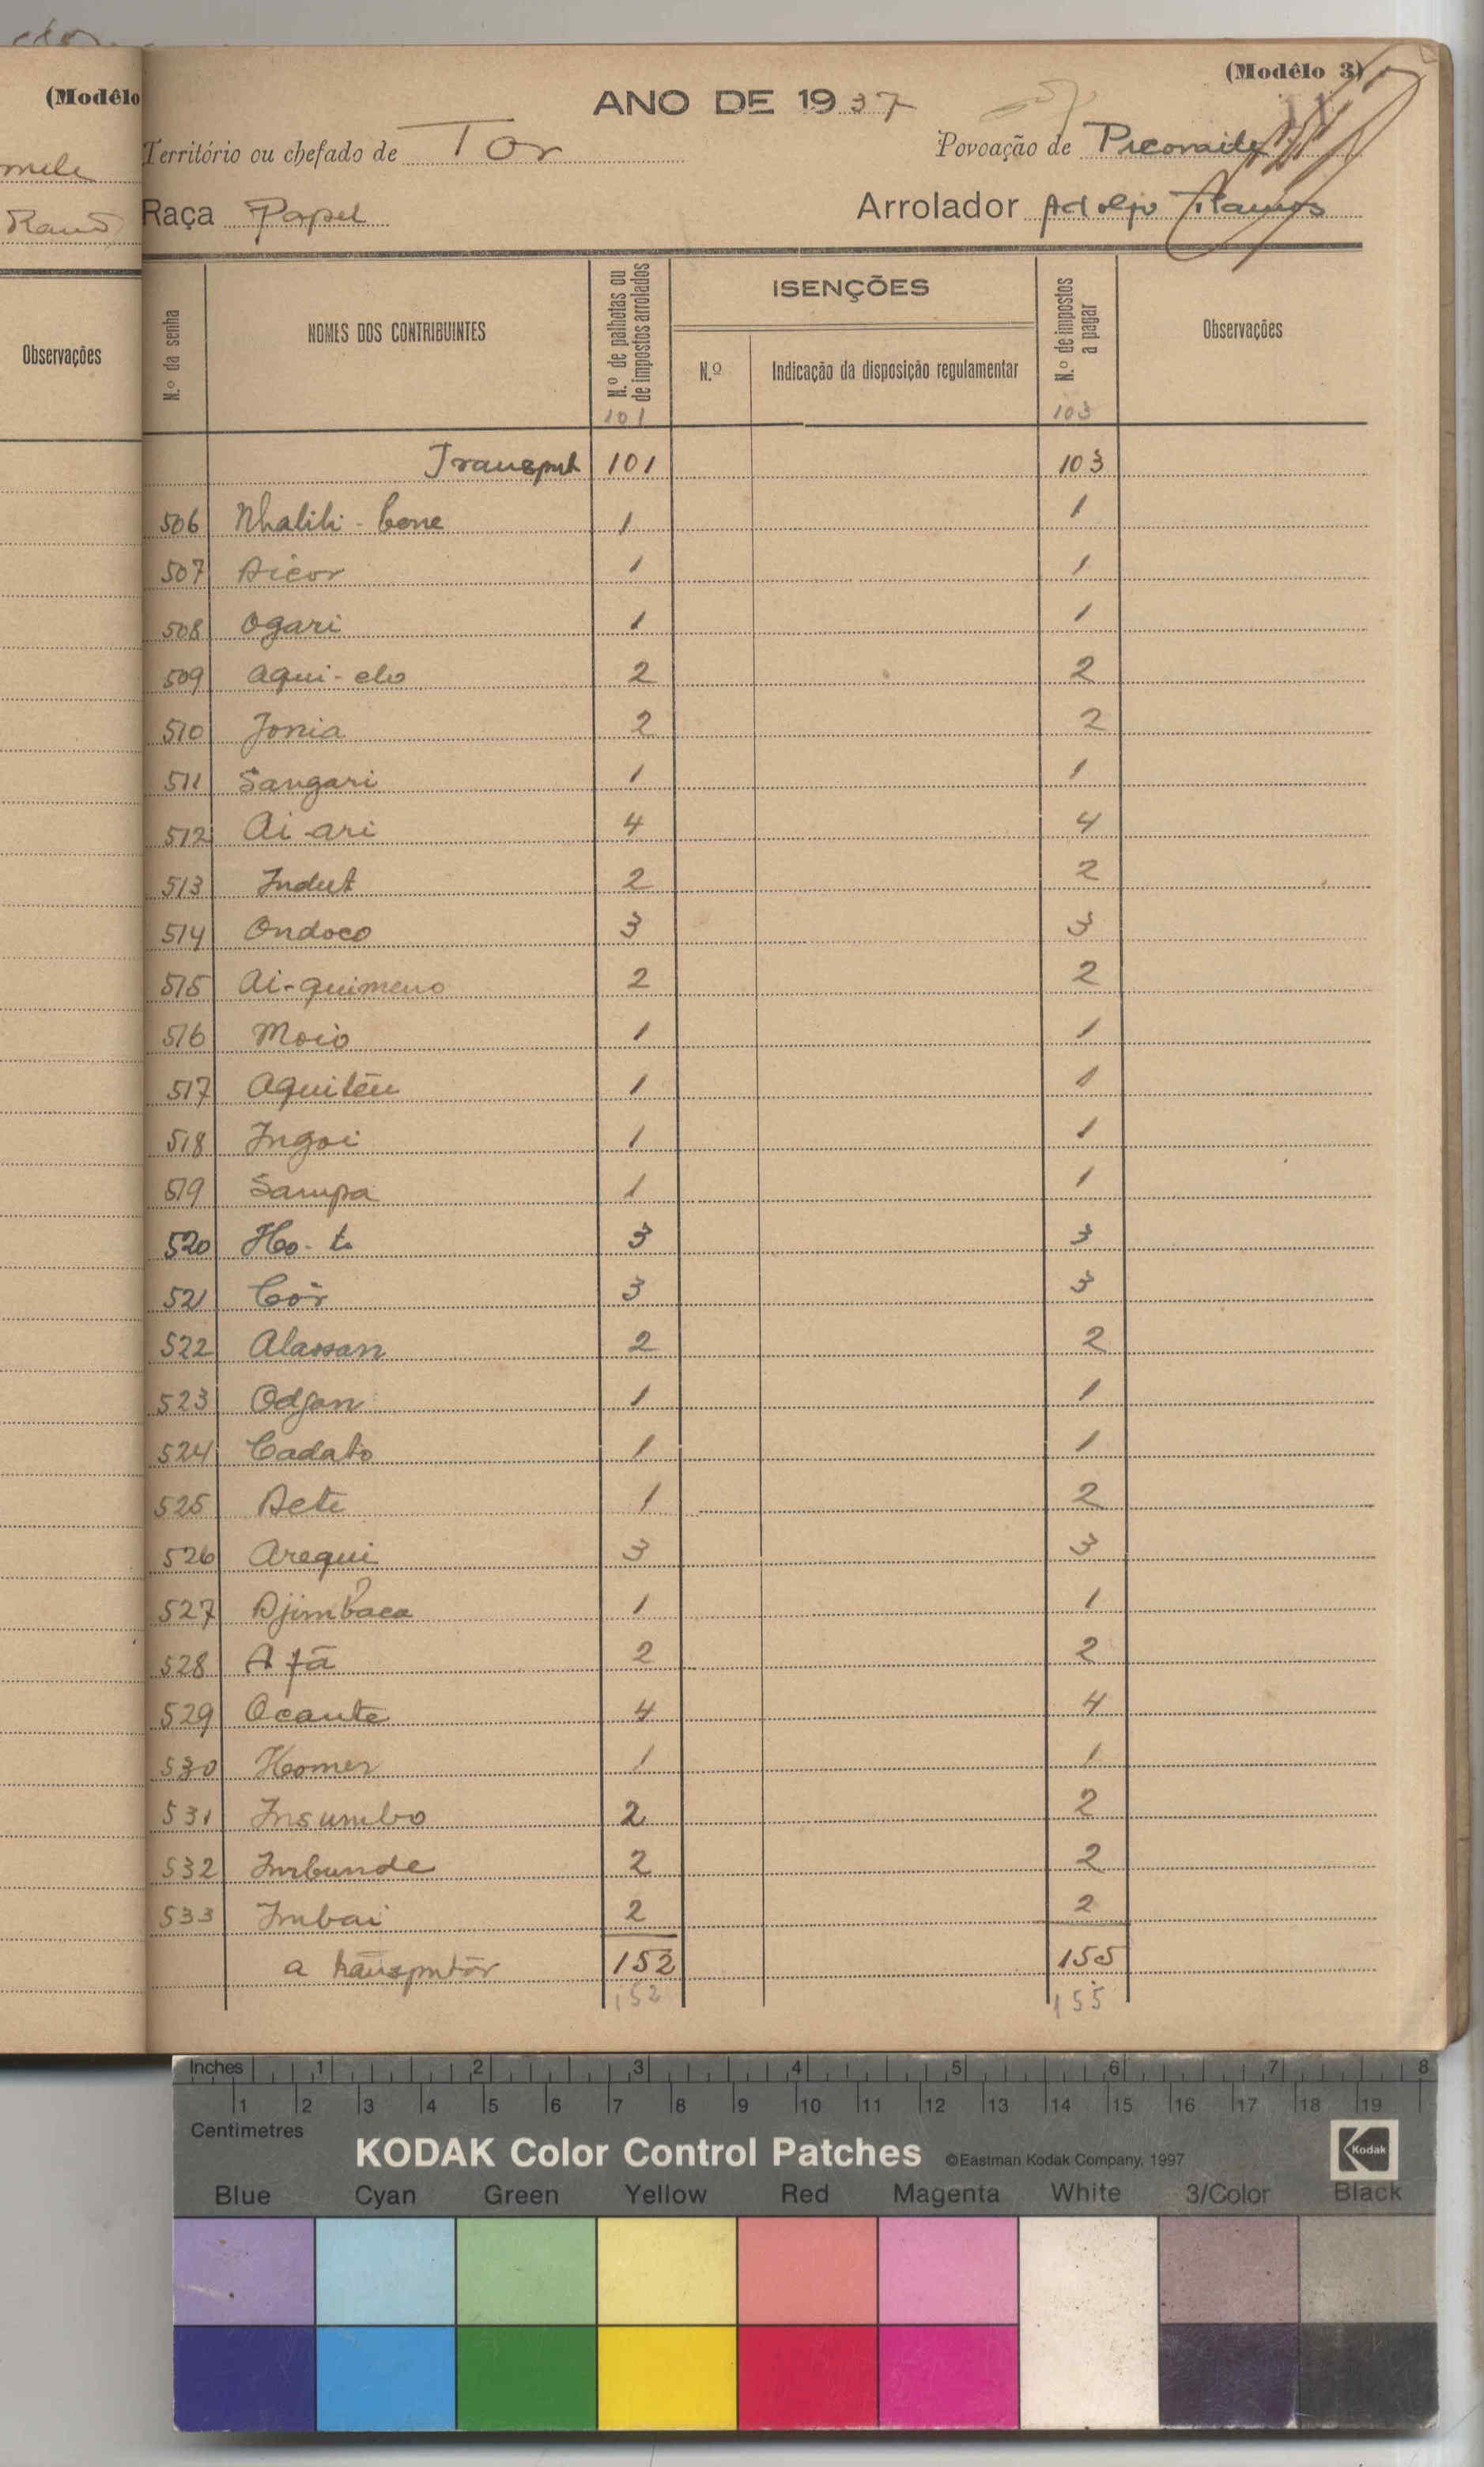 (Modêlo
Observações
(Modêlo 3)
ANO DE 1937
Território ou chefado de Tor Povoação de
Raça Papel Arrolador Adolfo Ramos
N.º da senha NOMES DOS CONTRIBUINTES N.º de palhotas ou de impostos arrolados ISENÇÕES N.º de impostos a pagar Observações
N.º Indicação da disposição regulamentar
101 103
Transporte 101 103
506 Nhalili-Cone 1 1
507 Aicor 1 1
508 Ogari 1 1
509 Aqui-elo 2 2
510 Jonia 2 2
511 Sangari 1 1
512 Ai-ari 4 4
513 Indut 2 2
514 Ondoco 3 3
515 Ai-quimeno 2 2
516 Moio 1 1
517 Aquitēu 1 1
518 Ingoi 1 1
519 Sampa 1 1
520 Ho-to 3 3
521 Còr 3 3
522 Alassan 2 2
523 Odjan 1 1
524 Cadato 1 1
525 Acte 1 2
526 Arequi 3 3
527 Djimbaca 1 1
528 Afā 2 2
529 Ocante 4 4
530 Homer 1 1
531 Insumbo 2 2
532 Imbunde 2 2
533 Imbai 2 2
a transportar 152 155
152 155
Inches 1 2 3 4 5 6 7 8
1 2 3 4 5 6 7 8 9 10 11 12 13 14 15 16 17 18 19
Centimetres
KODAK Color Control Patches ©Eastman Kodak Company, 1997 Kodak
Blue Cyan Green Yellow Red Magenta White 3/Color Black